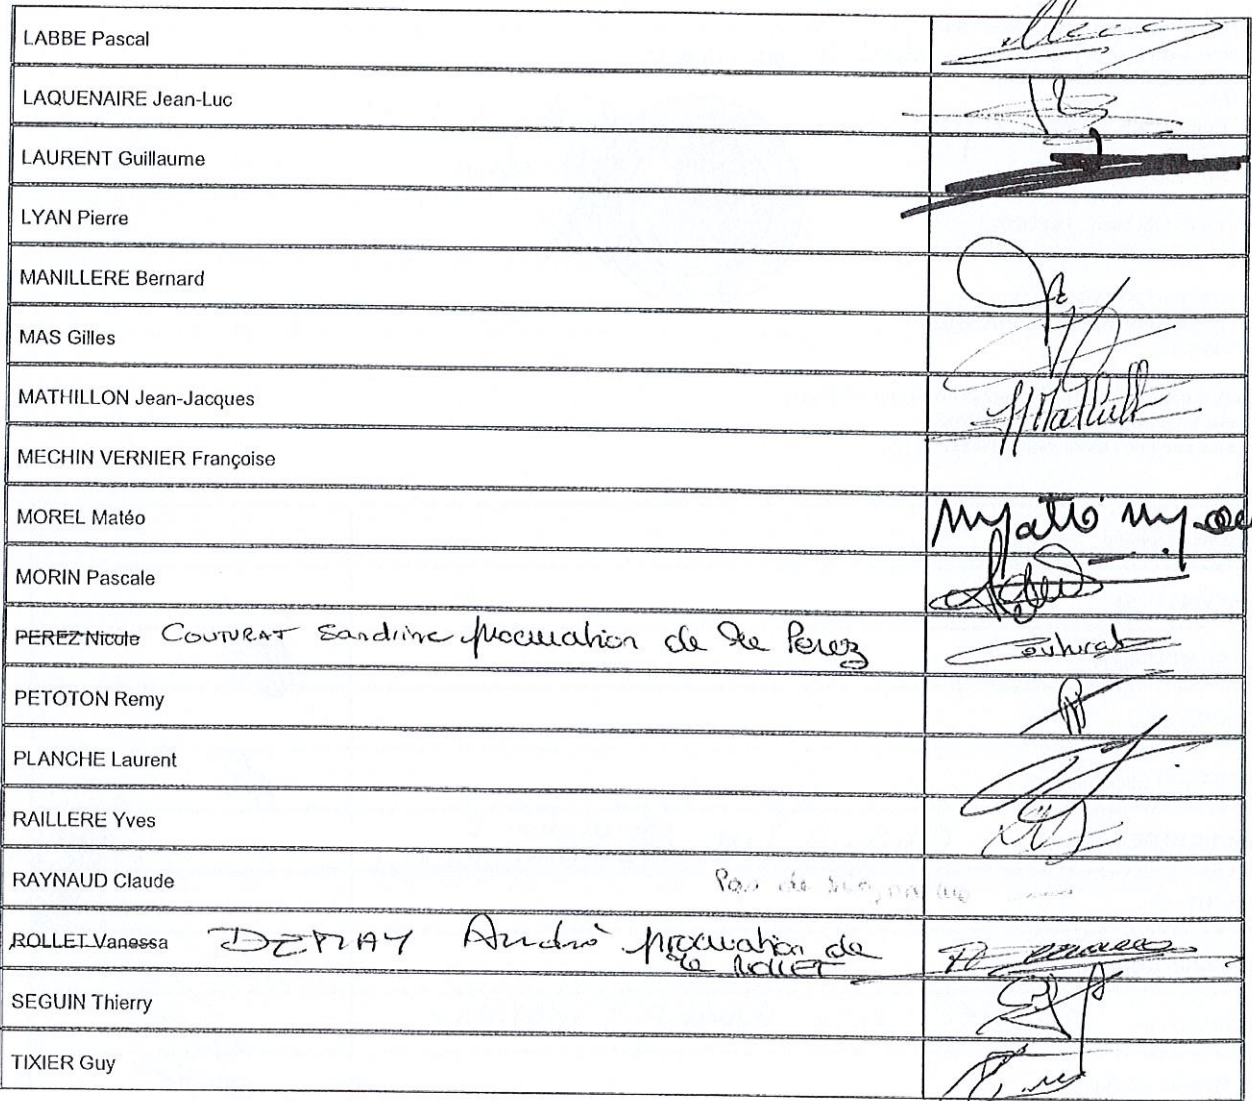 LABBE Pascal
LAQUENAIRE Jean-Luc
LAURENT Guillaume
LYAN Pierre
MANILLERE Bernard
MAS Gilles
MATHILLON Jean-Jacques
MECHIN VERNIER Françoise
MOREL Matéo
MORIN Pascale
PEREZ Nicole COUTURAT Sandrine procuration de Perez Couturat
PETOTON Remy
PLANCHE Laurent
RAILLERE Yves
RAYNAUD Claude Pas de
ROLLET Vanessa André procuration de
ROLLET
SEGUIN Thierry
TIXIER Guy